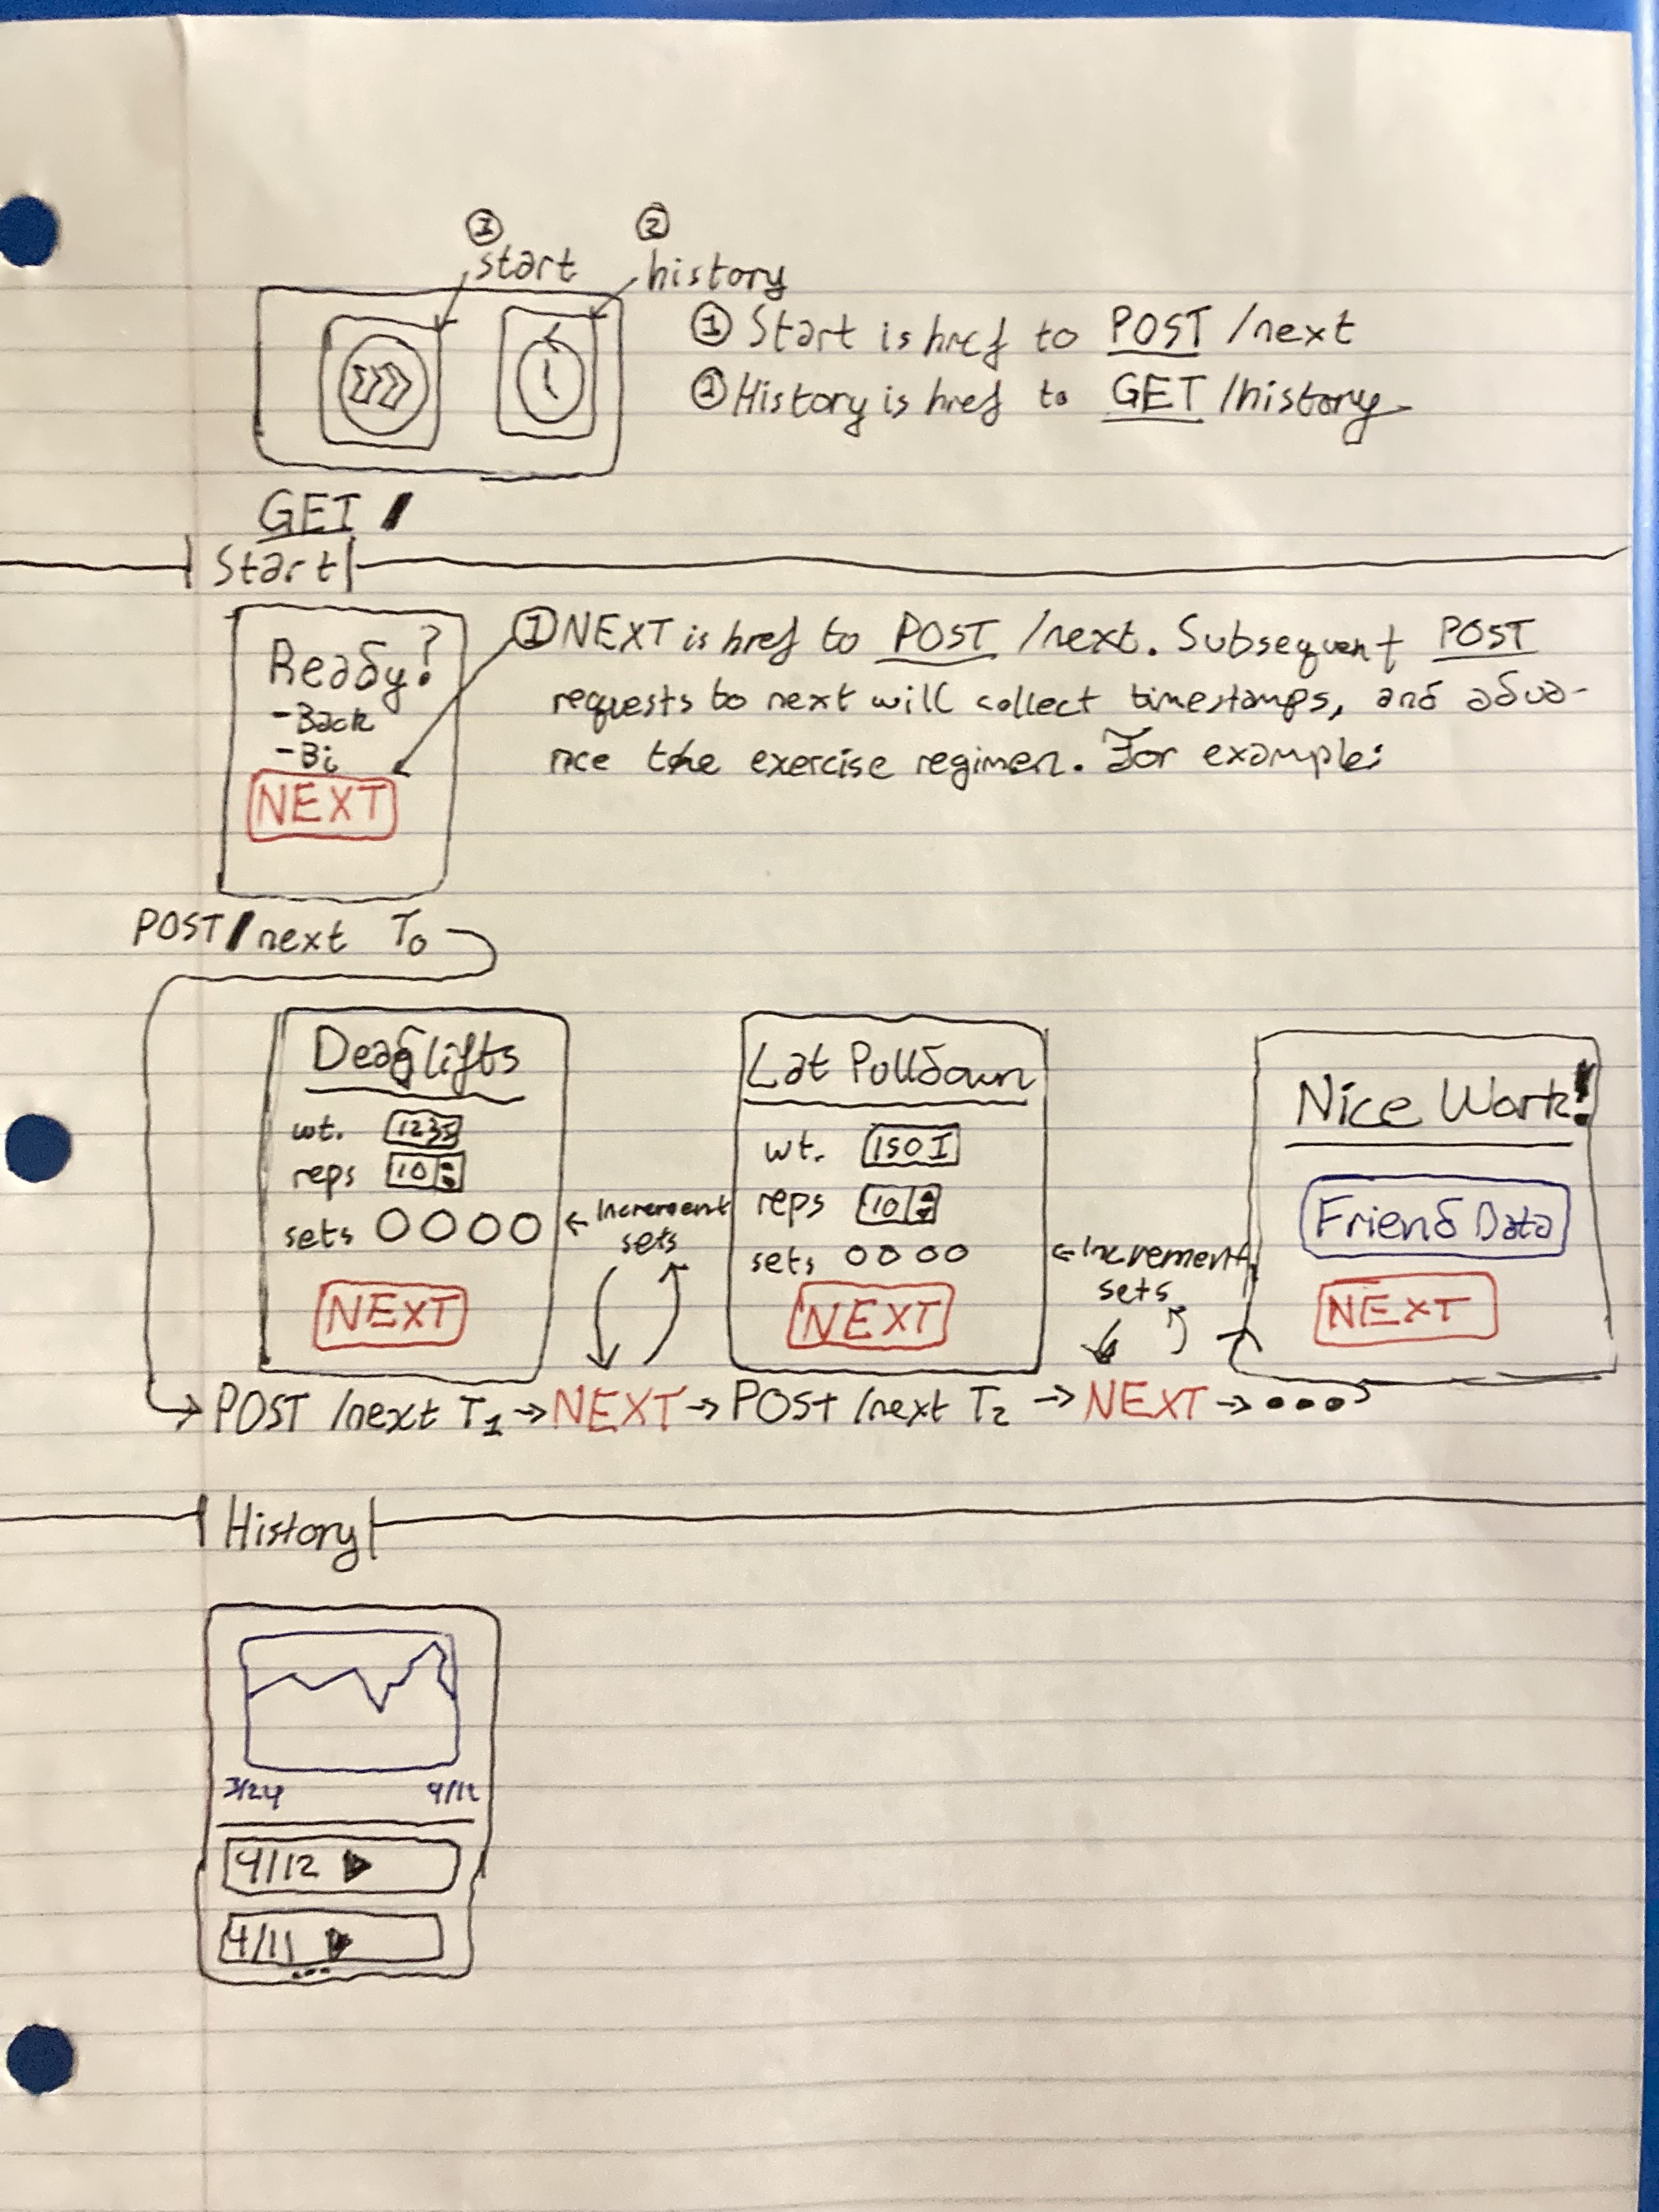 ① start
② history
① Start is href to POST /next
② History is href to GET /history
GET /
Start
Ready?
-Back
-Bi
NEXT
① NEXT is href to POST /next. Subsequent POST
requests to next will collect timestamps, and adva-
nce the exercise regimen. For example:
POST /next T0
Deadlifts
wt.
reps 10
sets
NEXT
← Increment
sets
Lat Pulldown
wt. 150
reps 10
sets
NEXT
← Increment
sets
Nice Work!
Friend Data
NEXT
→ POST /next T1 → NEXT → POST /next T2 → NEXT → ...
History
3/24 4/12
4/12 ▶
4/11 ▶
...